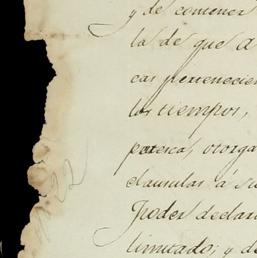 y de contener
la de que a
cas pertenecien
los tiempos,
parezca, otorga
clausulas á su
Poder declara
limitado; y de
22